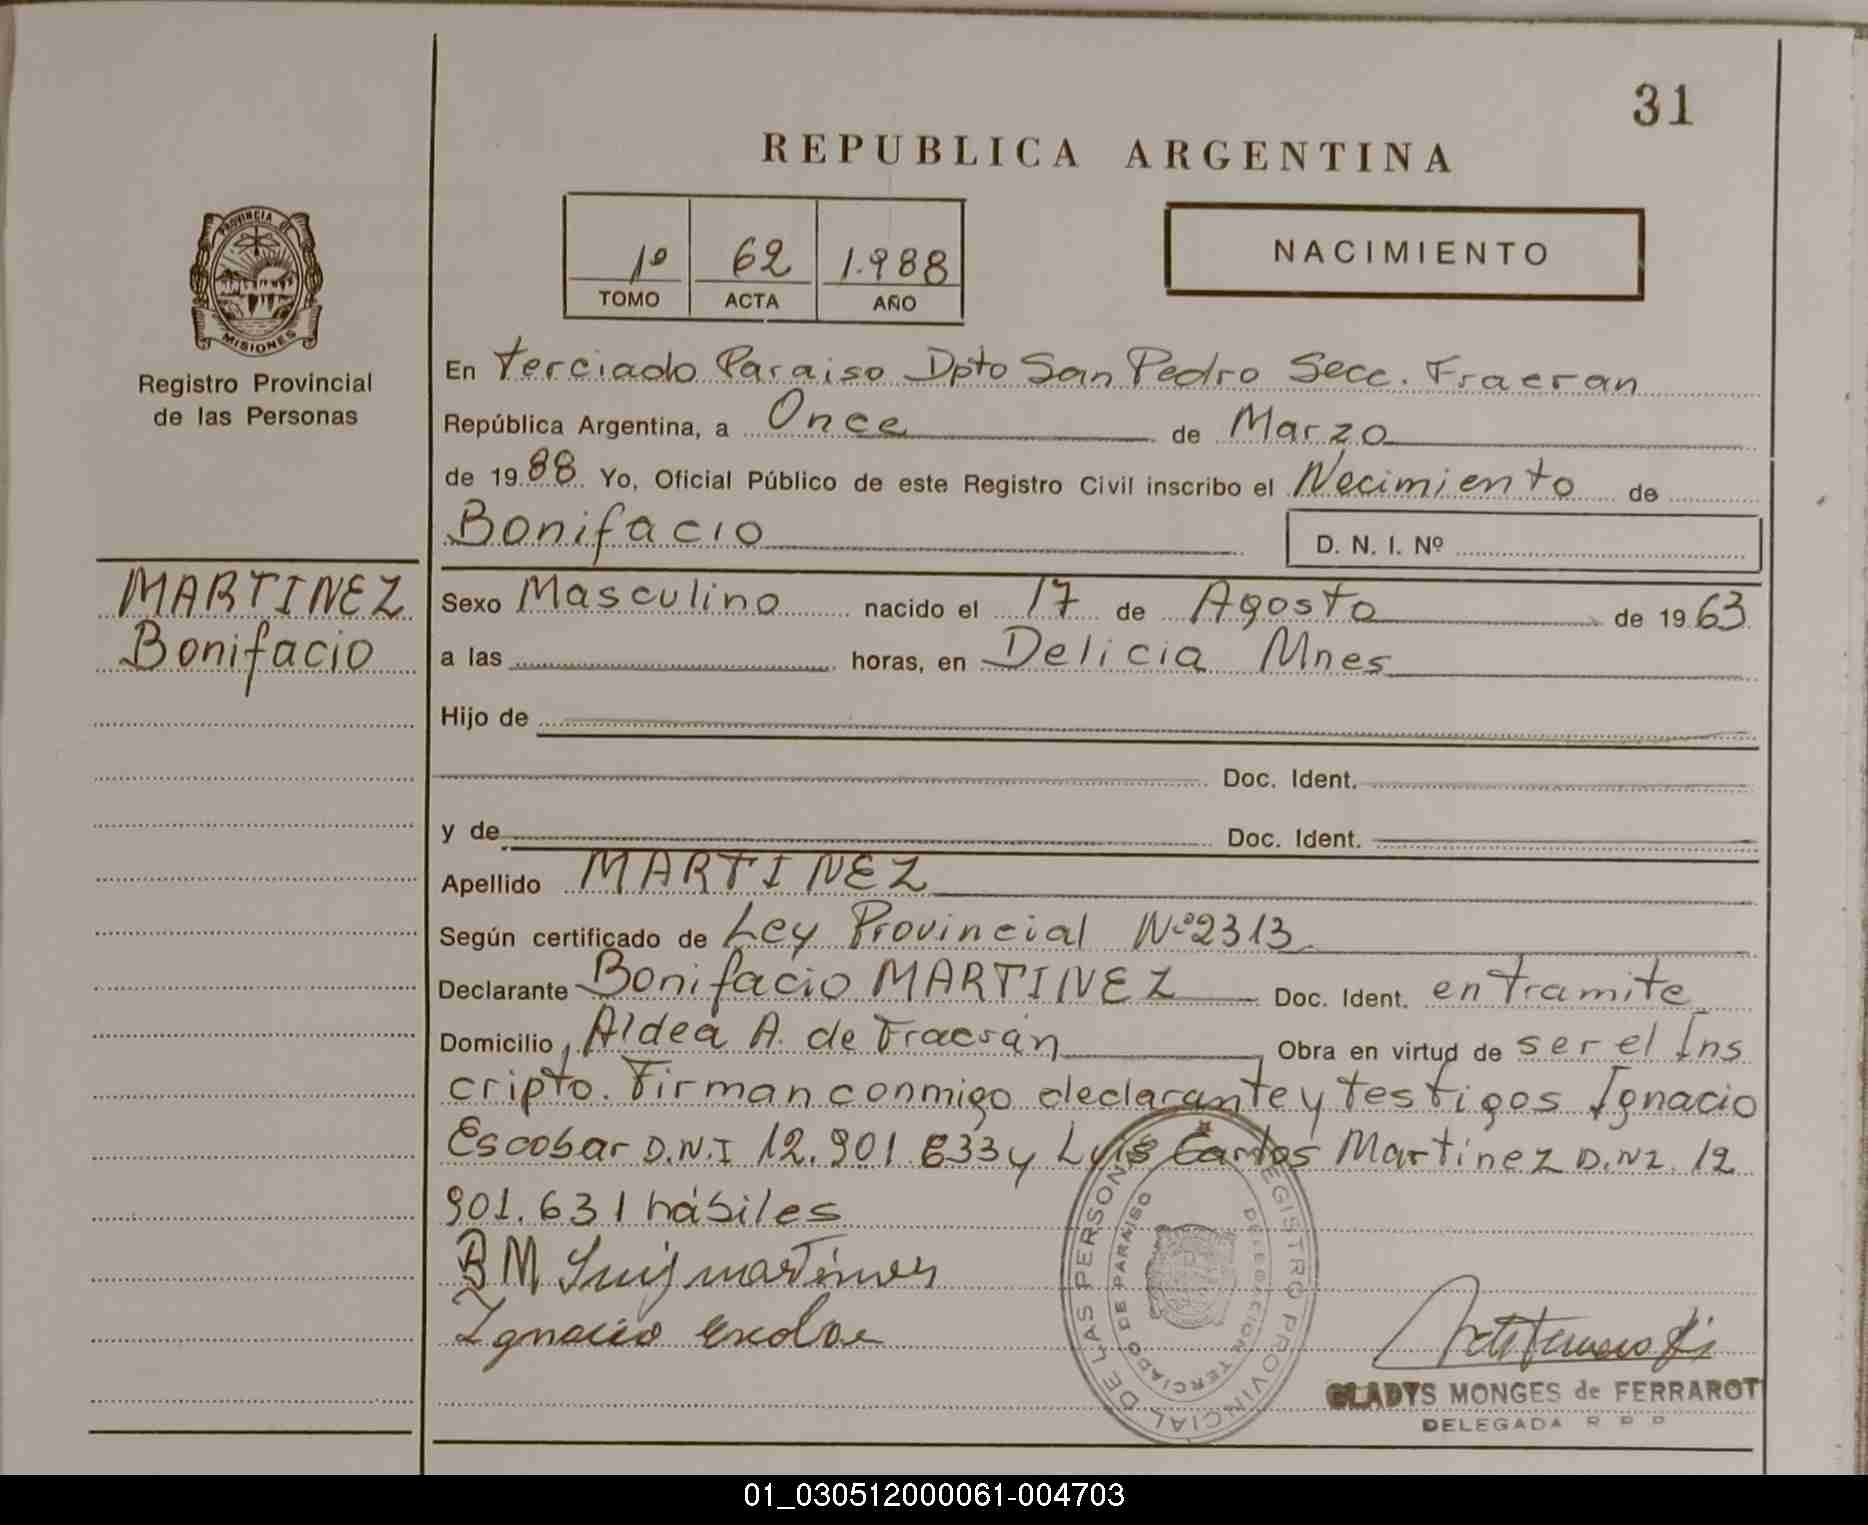 31
REPUBLICA ARGENTINA
1º 62 1.988
TOMO ACTA AÑO
NACIMIENTO
PROVINCIA DE
MISIONES
Registro Provincial
de las Personas
MARTINEZ
Bonifacio
En Terciado Paraiso Dpto San Pedro Secc. Fracran
República Argentina, a Once de Marzo
de 1988 Yo, Oficial Público de este Registro Civil inscribo el Nacimiento de
Bonifacio D. N. I. Nº
Sexo Masculino nacido el 17 de Agosto de 1963
a las horas, en Delicia Mnes
Hijo de
Doc. Ident.
y de Doc. Ident.
Apellido MARTINEZ
Según certificado de Ley Provincial Nº 2313
Declarante Bonifacio MARTINEZ Doc. Ident. en Tramite
Domicilio Aldea A. de Fracrán Obra en virtud de ser el Ins
cripto. Firman conmigo declarante y testigos Ignacio
Escobar D.N.I 12.901.633 y Luis Carlos Martinez D.N.I. 12
901.631 hábiles
BM Luis martines
Ignacio escobar
REGISTRO PROVINCIAL DE LAS PERSONAS
DELEGACION TERCIADO DE PARAISO
GLADYS MONGES de FERRAROTI
DELEGADA R P P
01_030512000061-004703